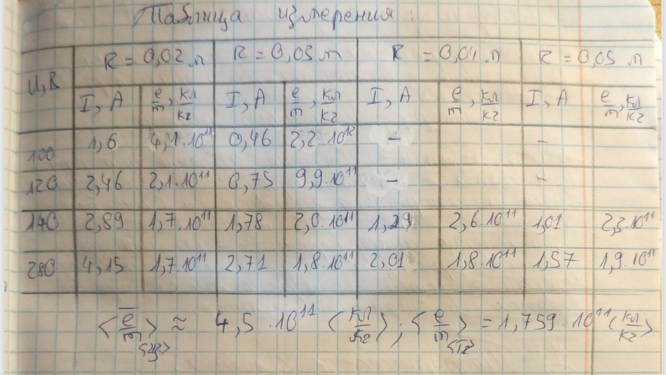 Таблица измерения:
U, В R = 0,02 м R = 0,03 м R = 0,04 м R = 0,05 м
I, А e/m, кл/кг I, А e/m, кл/кг I, А e/m, кл/кг I, А e/m, кл/кг
100 1,6 4,1·10¹¹ 0,46 2,2·10¹² - -
120 2,46 2,1·10¹¹ 0,75 9,9·10¹¹ - -
140 2,89 1,7·10¹¹ 1,78 2,0·10¹¹ 1,29 2,6·10¹¹ 1,01 2,3·10¹¹
280 4,15 1,7·10¹¹ 2,71 1,8·10¹¹ 2,01 1,8·10¹¹ 1,57 1,9·10¹¹
<e/m> ≈ 4,5·10¹¹ (кл/кг); <e/m> = 1,759·10¹¹ (кл/кг)